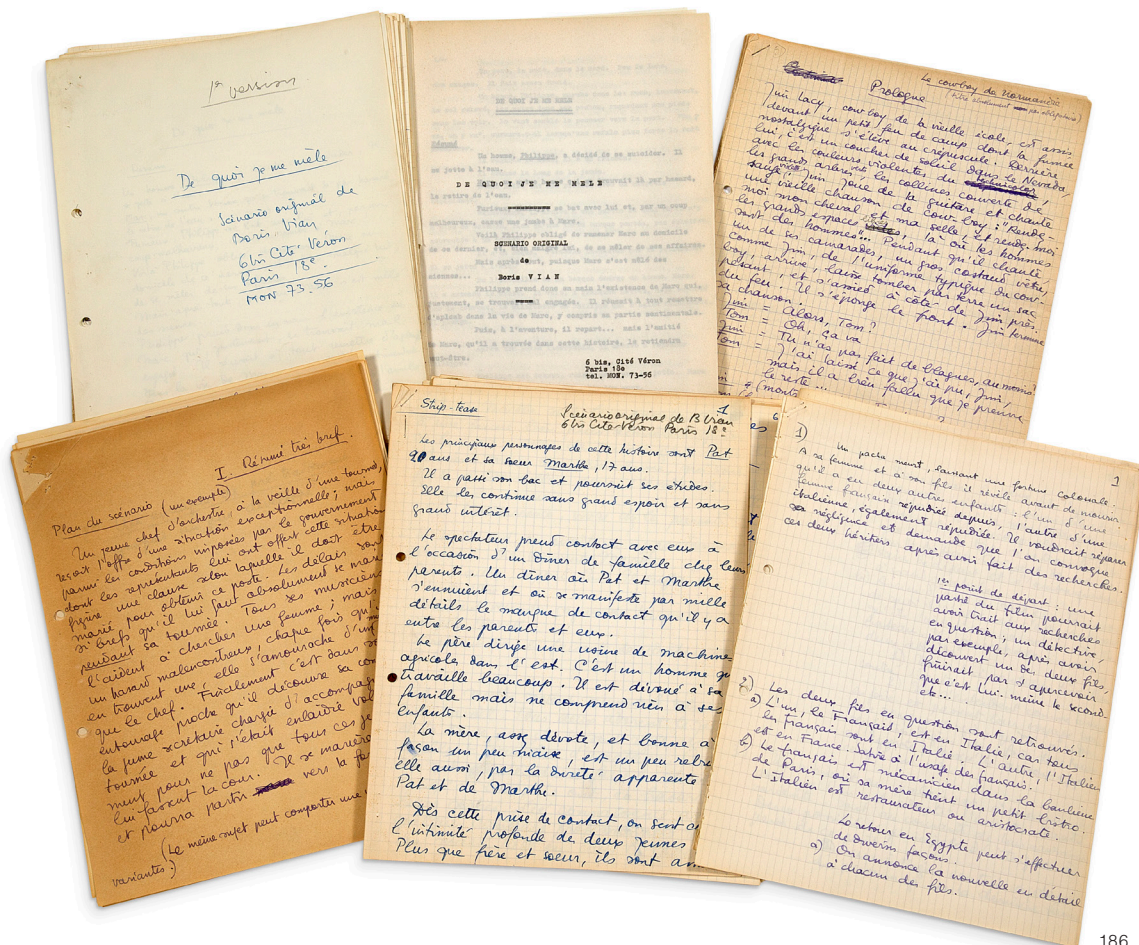 1re version
De quoi je me mêle
Scénario original de
Boris Vian
6 bis Cité Véron
Paris 18e
MON 73.56
DE QUOI JE ME MELE
Un homme, Philippe, a décidé de se suicider. Il
se jette à l'eau.
la retire de l'eau.
DE QUOI JE ME MELE
SCENARIO ORIGINAL
de
Boris VIAN
Philippe prend donc en main l'existence de Marc qui,
justement, se trouve mal engagé. Il réussit à tout remettre
d'aplomb dans la vie de Marc, y compris sa partie sentimentale.
Puis, à l'aventure, il repart... mais l'amitié
de Marc, qu'il a trouvée dans cette histoire, le retiendra
peut-être.
6 bis, Cité Véron
Paris 18e
tel. MON. 73-56
Le cowboy de Normandie
(titre absolument pas obligatoire)
Prologue
Jim Lacy, cowboy de la vieille école, est assis
devant un petit feu de camp dont la fumée
nostalgique s'élève au crépuscule. Derrière
lui, c'est un coucher de soleil dans le Nevada,
avec les couleurs violentes du
les grands arbres, les collines couvertes de
sauge. Jim joue de la guitare et chante
une vieille chanson de cow-boy : "Rends
moi mon cheval et ma selle et rends-moi
les grands espaces, là où les hommes
sont des hommes... Pendant qu'il chante
un de ses camarades, un gros costaud vêtu,
comme Jim, de l'uniforme typique du cow-
boy, arrive, laisse tomber par terre un sac
pesant, et s'assied à côté de Jim près
du feu. Il s'éponge le front. Jim termine
sa chanson.
Jim = Alors, Tom ?
Tom = Oh, ça va
Jim = Tu n'as pas fait de blagues, au moins ?
Tom = J'ai laissé ce que j'ai pu, Jim,
mais il a bien fallu que je prenne
le reste...
I. Résumé très bref.
Plan du scénario (un exemple)
Un jeune chef d'orchestre, à la veille d'une tournée,
reçoit l'offre d'une situation exceptionnelle ; mais
parmi les conditions imposées par le gouvernement
dont les représentants lui ont offert cette situation
figure une clause selon laquelle il doit être
marié pour obtenir ce poste. Les délais sont
si brefs qu'il lui faut absolument se marier
pendant sa tournée. Tous ses musiciens
l'aident à chercher une femme ; mais
un hasard malencontreux, chaque fois qu'
en trouvent une, elle s'amourache d'un
que le chef. Finalement c'est dans
entourage proche qu'il découvre sa com
la jeune secrétaire chargée d'accompag
tournée et qui s'était enlaidie vol
ment pour ne pas que tous ces je
lui fassent la cour. Il se mariera
et pourra partir vers la
(Le même sujet peut comporter une
variantes.)
Strip-tease
1
Scénario original de B Vian
6 bis Cité Véron Paris 18e
Les principaux personnages de cette histoire sont Pat
20 ans et sa soeur Marthe, 17 ans.
Il a passé son bac et poursuit ses études.
Elle les continue sans grand espoir et sans
grand intérêt.
Le spectateur prend contact avec eux à
l'occasion d'un dîner de famille chez leurs
parents. Un dîner où Pat et Marthe
s'ennuient et où se manifeste par mille
détails le manque de contact qu'il y a
entre les parents et eux.
Le père dirige une usine de machines
agricoles dans l'est. C'est un homme qui
travaille beaucoup. Il est dévoué à sa
famille mais ne comprend rien à ses
enfants.
La mère, assez dévote, et bonne d'
façon un peu niaise, est un peu
elle aussi, par la dureté apparente
Pat et de Marthe.
Dès cette prise de contact, on sent
l'intimité profonde de deux jeunes
Plus que frère et soeur, ils sont am
1
1)
Un pacha meurt, laissant une fortune colossale.
A sa femme et à son fils il révèle avant de mourir
qu'il a eu deux autres enfants : l'un d'une
femme française répudiée depuis, l'autre d'une
italienne, également répudiée. Il voudrait réparer
sa négligence et demande que l'on convoque
ces deux héritiers après avoir fait des recherches.
1er point de départ : une
partie du film pourrait
avoir trait aux recherches
en question ; un détective,
par exemple, après avoir
découvert un des deux fils,
finirait par s'apercevoir
que c'est lui-même le second.
etc...
2)
Les deux fils en question sont retrouvés.
a) L'un, le Français, est en Italie, car tous
les Français sont en Italie. L'autre, l'Italien
est en France. Satire à l'usage des français.
b) Le français est mécanicien dans la banlieue
de Paris, où sa mère tient un petit bistro.
L'Italien est restaurateur ou aristocrate.
Le retour en Egypte peut s'effectuer
de diverses façons.
a) On annonce la nouvelle en détail
à chacun des fils.
186